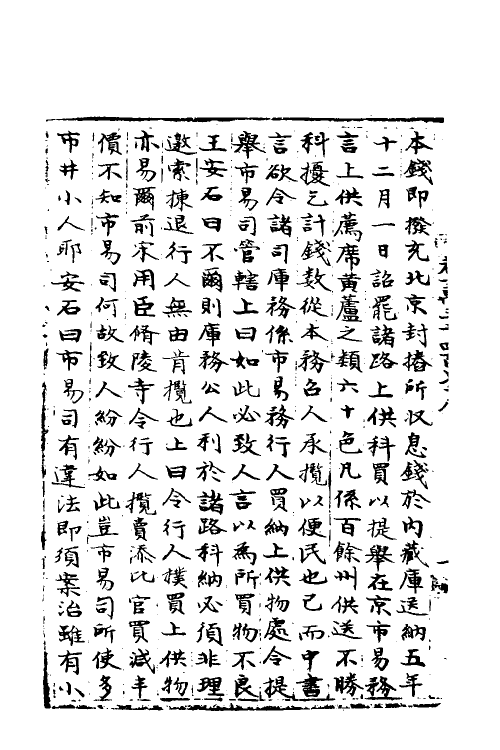 本錢即撥充北京封樁所収息錢於内藏庫送納五年
十二月一日詔罷諸路上供科買以提舉在京市易務
言上供薦席黃蘆之類六十色凡係百餘州供送不勝
科擾乞計錢数從本務召人承攬以便民也已而中書
言欲令諸司庫務係市易務行人買納上供物處令提
舉市易司管轄上曰如此必致人言以為所買物不良
王安石曰不爾則庫務公人利於諸路科納必須非理
邀索揀退行人無由肯攬也上曰令行人撲買上供物
亦易爾前宋用臣脩陵寺令行人攬賣添比官買減半
價不知市易司何故致人紛紛如此豈市易司所使多
市井小人耶安石曰市易司有違法即須案治雖有小